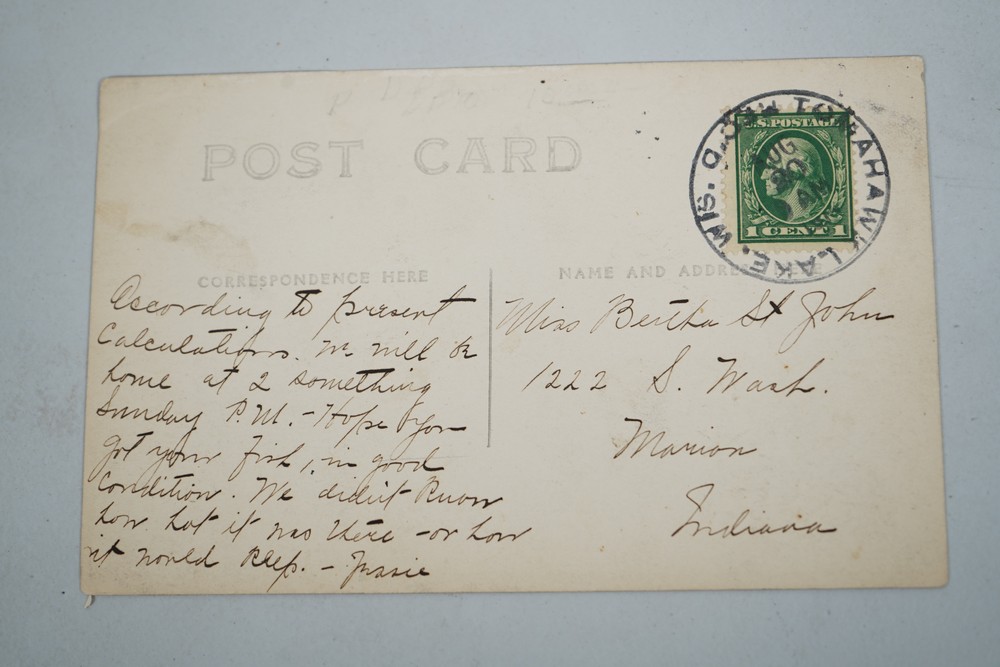 POST CARD
U.S. POSTAGE
1 CENT 1
TOMAHAWK LAKE. WIS.
AUG
AM
CORRESPONDENCE HERE
NAME AND ADDRESS HERE
According to present
Calculations. We will be
home at 2 something
Sunday P.M. - Hope you
got your fish, in good
Condition. We didn't know
how hot it was there - or how
it would keep. -
Miss Bertha St John
1222 S. Wash.
Marion
Indiana